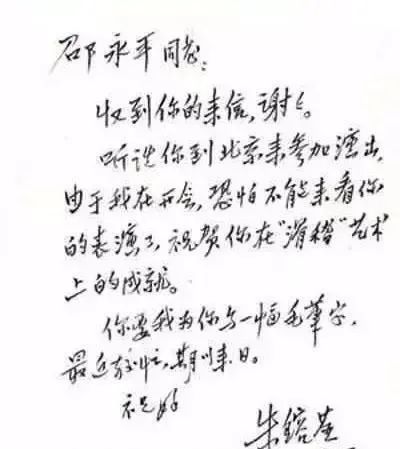 邵永平同志：
收到你的来信，谢谢。
听说你到北京来参加演出，
由于我在开会，恐怕不能来看你
的表演了，祝贺你在“滑稽”艺术
上的成就。
你要我为你写一幅毛筆字，
最近较忙，期以来日。
祝好
朱镕基